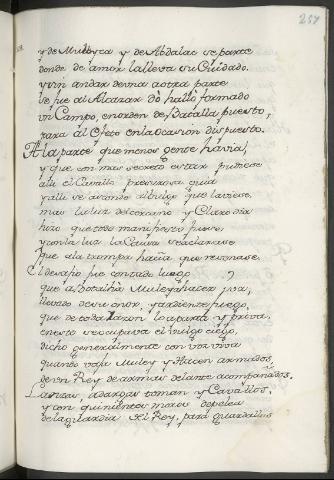 257
y de Muleyça y de Abdalac se parte
donde de amor la lleva su Cuidado.
y sin andar de una a otra parte
se fue al Alcazar do halló formado
un Campo, en orden de Batalla puesto,
para al efeto en la ocasion dispuesto.
A la parte que menos gente havia,
y que con mas secreto estar pudiese
alli el Cavallo presurosa guia
y alli se asconde al bulto que la viese.
mas la luz del cercano y Claro dia
hizo que todo manifiesto fuese,
y con la luz la Causa se aclarase
que a la trompa hacia que resonase.
El desafio fue contado luego
que a Batalla Muley y Hacen
llevado de su onor, y ardiente fuego,
que de toda razon lo aparta y priva.
en esto se ocupava el vulgo ciego,
dicho generalmente con voz viva
quando vajan Muley y Hacen armados,
de un Rey de armas delante acompañados.
Lanzas, adargas toman y Cavallos,
y con quinientos moros de pelea
de la guardia del Rey, para guardallos